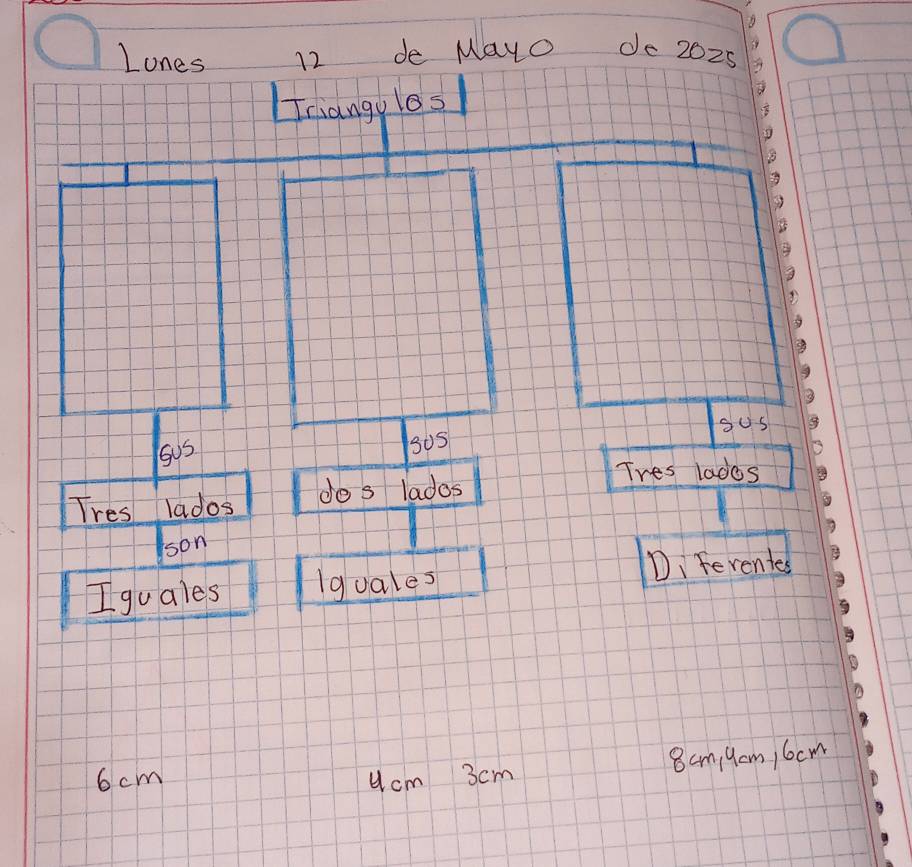 Lunes 12 de Mayo de 2025
Triangulos
sus sus sus
Tres lados dos lados Tres lados
son
Iguales Iguales Diferentes
6cm 4cm 3cm 8cm, 4cm, 6cm